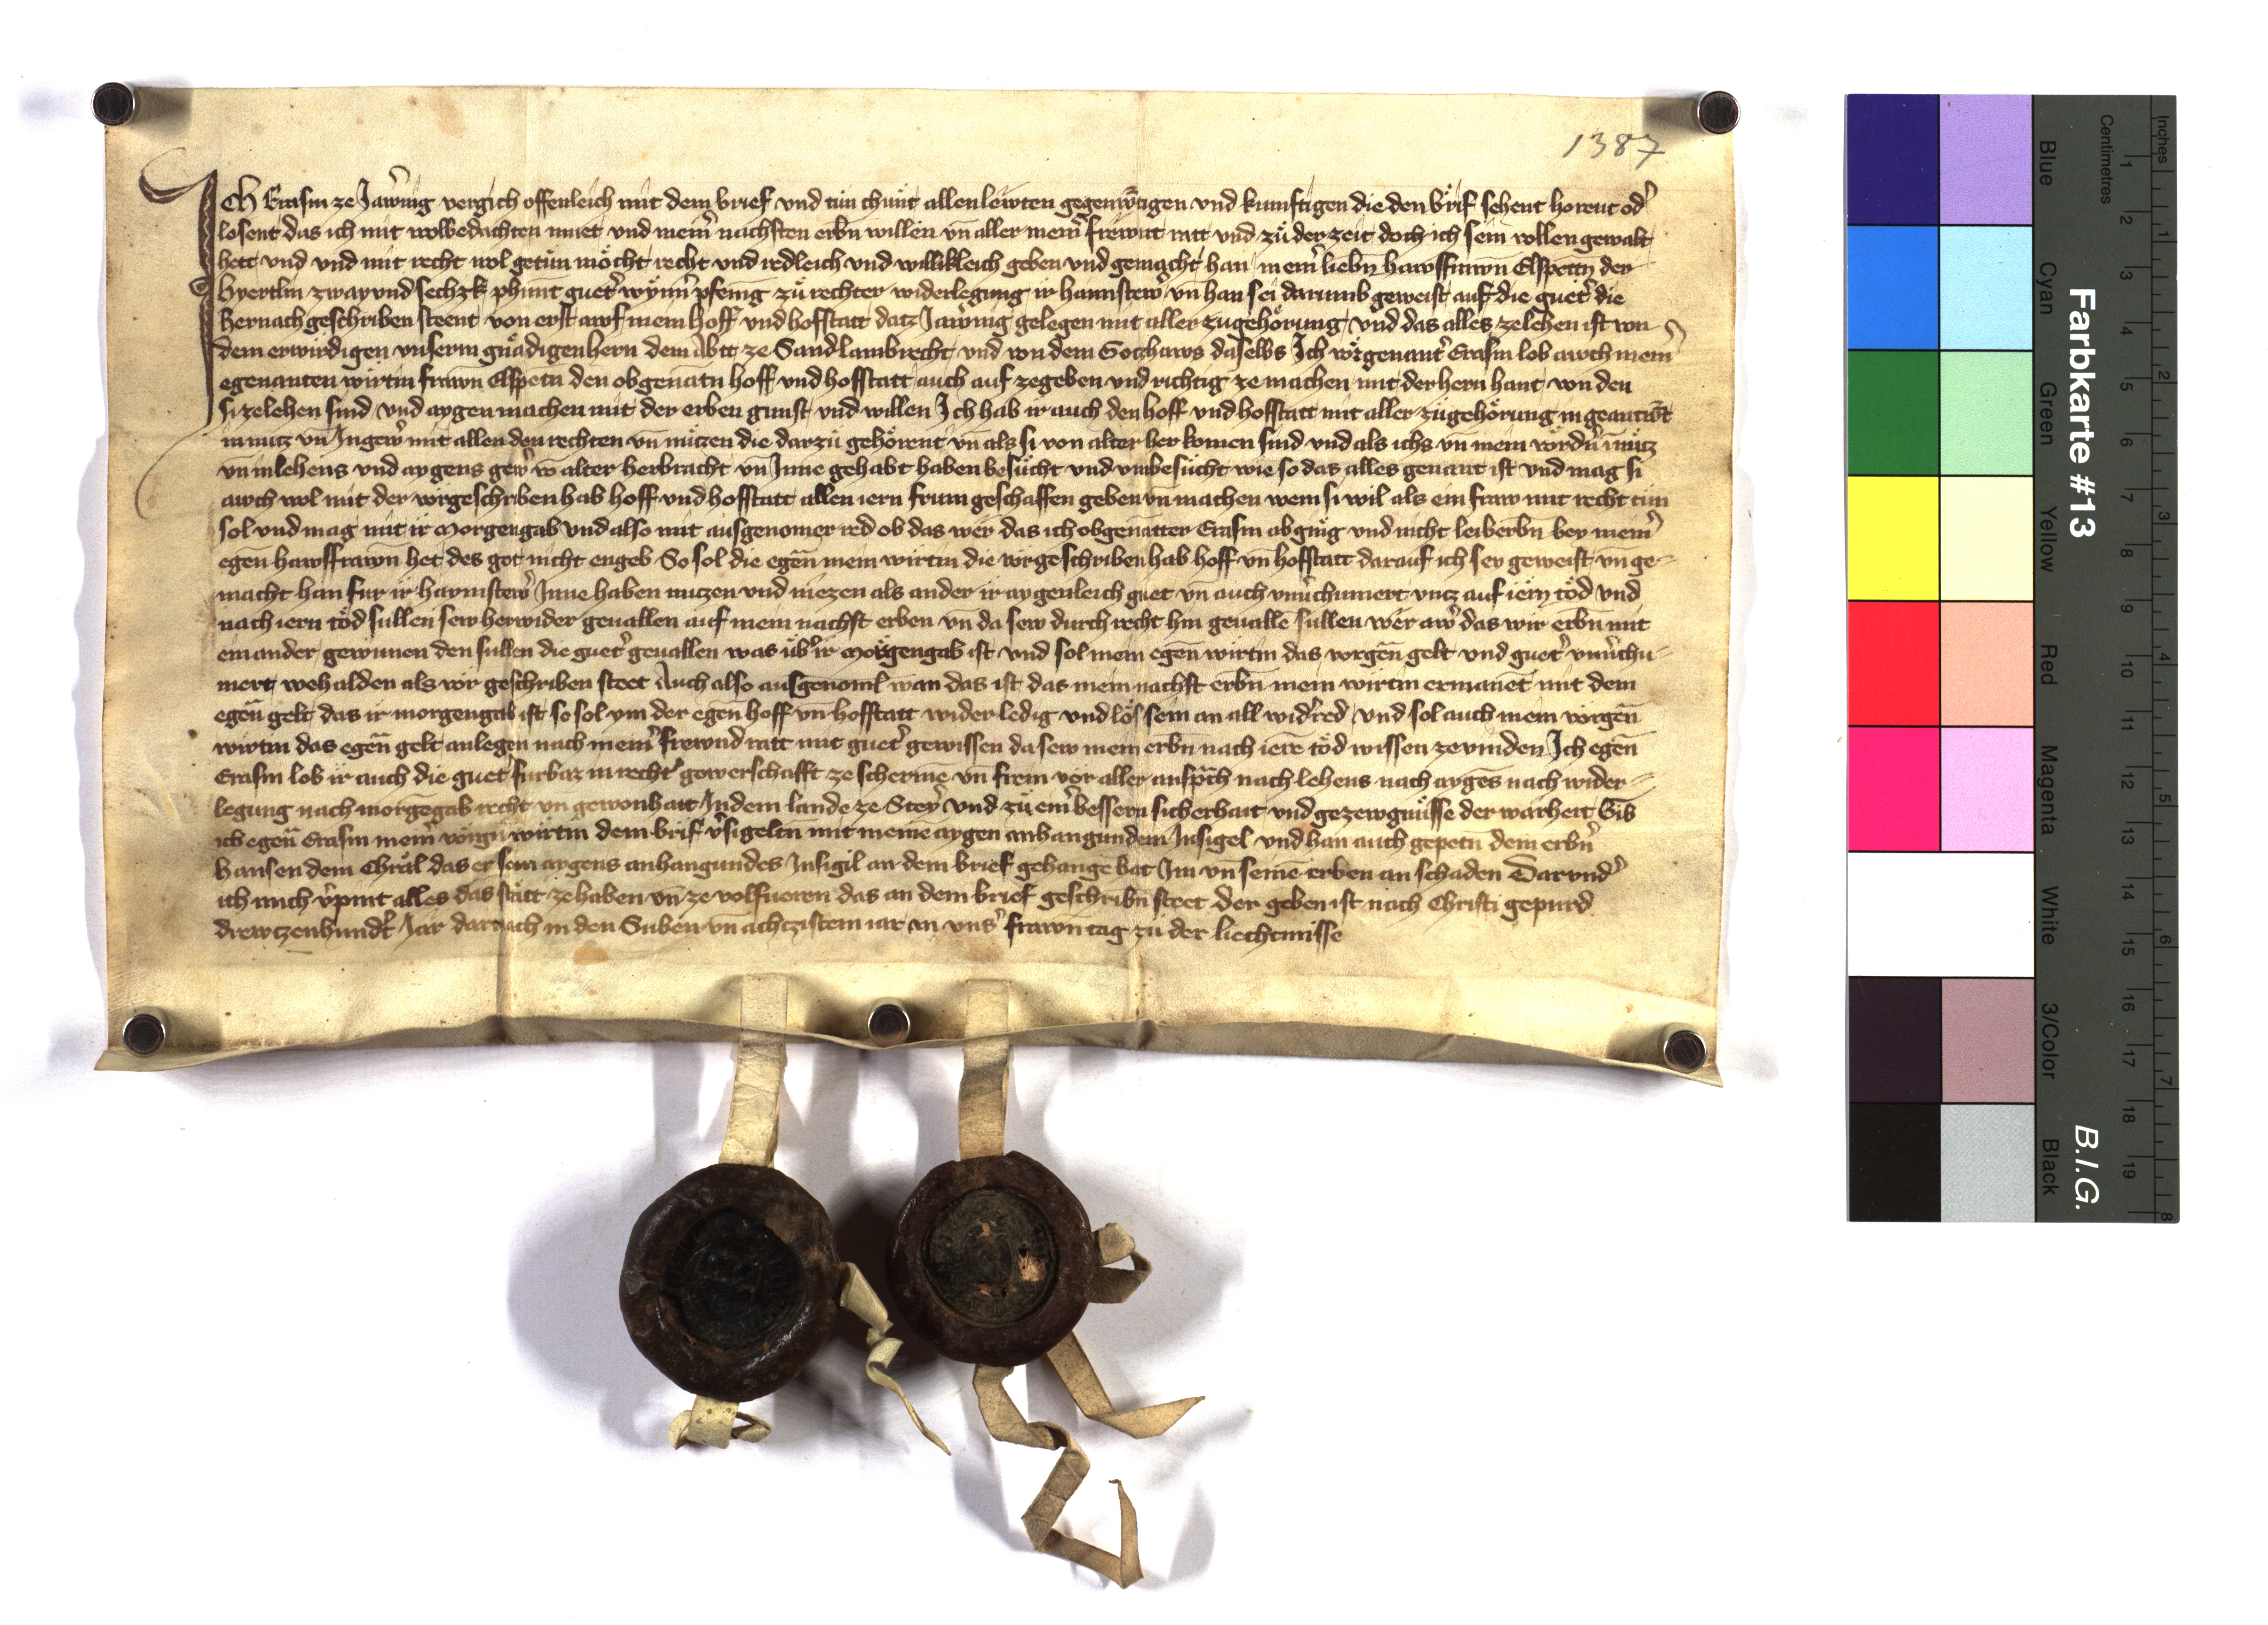 1387
Ich Erasm ze Jawrnig vergich offenleich mit dem brief vnd tun chunt allen lewten gegenwurtigen vnd kunftigen die den brif sehent horent oder
losent das ich mit wolbedachten muet vnd meinr nachsten erbn willen vn aller meinr frewnt ratt vnd zu der zeit doch ich sein vollen gewalt
hett vnd vnd mit recht wol getun möcht recht vnd redleich vnd willikleich geben vnd gemacht han meinr liebn hawsfrawn Elspetn der
zway vnd sechzk phunt guetr wynnr pfenig zu rechter widerlegung ir haimstewr vn han sei darumb geweist auf die guetr die
hernach geschriben steent von erst awf mein hoff vnd hofstatt datz Jawrnig gelegen mit aller zugehörung vnd das alles ze lehen ist von
dem erwirdigen vnserm gnädigen hern dem Abtt ze Sand lambrecht vnd von dem Gotzhaws daselbs Ich vorgenantr Erasm lob awch meinr
egenanten wirtin frawn Elspetn den obgenatn hoff vnd hofstatt auch auf ze geben vnd richtig ze machen mit der hern hant von den
si ze lehen sind vnd aygen machen mit der erben gunst vnd willen Ich hab ir auch den hoff vnd hofstatt mit aller zugehörung in geantwrt
in nutz vn In gewr mit allen den rechten vn nützen die darzu gehörent vn als si von alter her komen sind vnd als ichs vn mein vordrn in nutz
vn in lehens vnd aygens gewr von alter herbracht vn Inne gehabt haben besücht vnd vnbesücht wie so das alles genant ist vnd mag si
awch wol mit der vorgeschriben hab hoff vnd hofstatt allen iern frum geschaffen geben vn machen wem si wil als ein fraw mit recht tun
sol vnd mag mit ir Morgengab vnd also mit ausgenomer red ob das wer das ich obgenatter Erasm abgieng vnd nicht leiberbn bey meinr
egen hawsfrawn het des got nicht engeb So sol die egen mein wirtin die vorgeschriben hab hoff vn hofstatt darauf ich sey geweist vn ge-
macht han fur ir haymstewr Inne haben nutzen vnd niezen als ander ir aygenleich guet vn auch vnuerchumert vntz auf iern töd vnd
nach iern töd sullen sew herwider geuallen auf mein nachst erben vn da sew durch recht hin geualle sullen wer awr das wir erbn mit
einander gewunen den sullen die guetr geuallen was übr ir Morgengab ist vnd sol mein egen wirtin das vorgen gelt vnd guetr vnuerchu-
mert wehalden als vor geschriben steet Auch also ausgenoml wan das ist das mein nachst erbn mein wirtin ermanet mit dem
egen gelt das ir morgengab ist so sol ym der egen hoff vn hofstatt wider ledig vnd lös sein an all widred vnd sol auch mein vorgen
wirtin das egen gelt anlegen nach meinr frewnd ratt mit guetr gewissen da sew mein erbn nach iere töd wissen ze vinden Ich egen
Erasm lob ir auch die guetr furbaz in rechtr gewerschafft ze scherme vn frein vor aller ansprach nach lehens nach ayges nach wider-
legung nach morgegab recht vn gewonhait In dem lande ze Steyr vnd zu einr bessern sicherhait vnd gezewgnüsse der warheit Gib
ich egen Erasm meinr vorgn wirtin dem brif versigeltn mit meine aygen anhangundem Insigel vnd han auch gepetn dem erbrn
Hansen dem Chräl das er sein aygens anhangundes Insigil an dem brief gehange hat Im vn seine erben an schaden Darvndr
ich mich verpint alles das statt ze haben vn ze volfueren das an dem brief geschribn steet der geben ist nach Christi gepurd
drewtzenhundrt Jar darnach in den Siben vn achtzistem iar an vnsr frawn tag zu der liechtmisse
Farbkarte #13
B.I.G.
Centimetres
Inches
Blue
Cyan
Green
Yellow
Red
Magenta
White
3/Color
Black
1 2 3 4 5 6 7 8 9 10 11 12 13 14 15 16 17 18 19
1 2 3 4 5 6 7 8